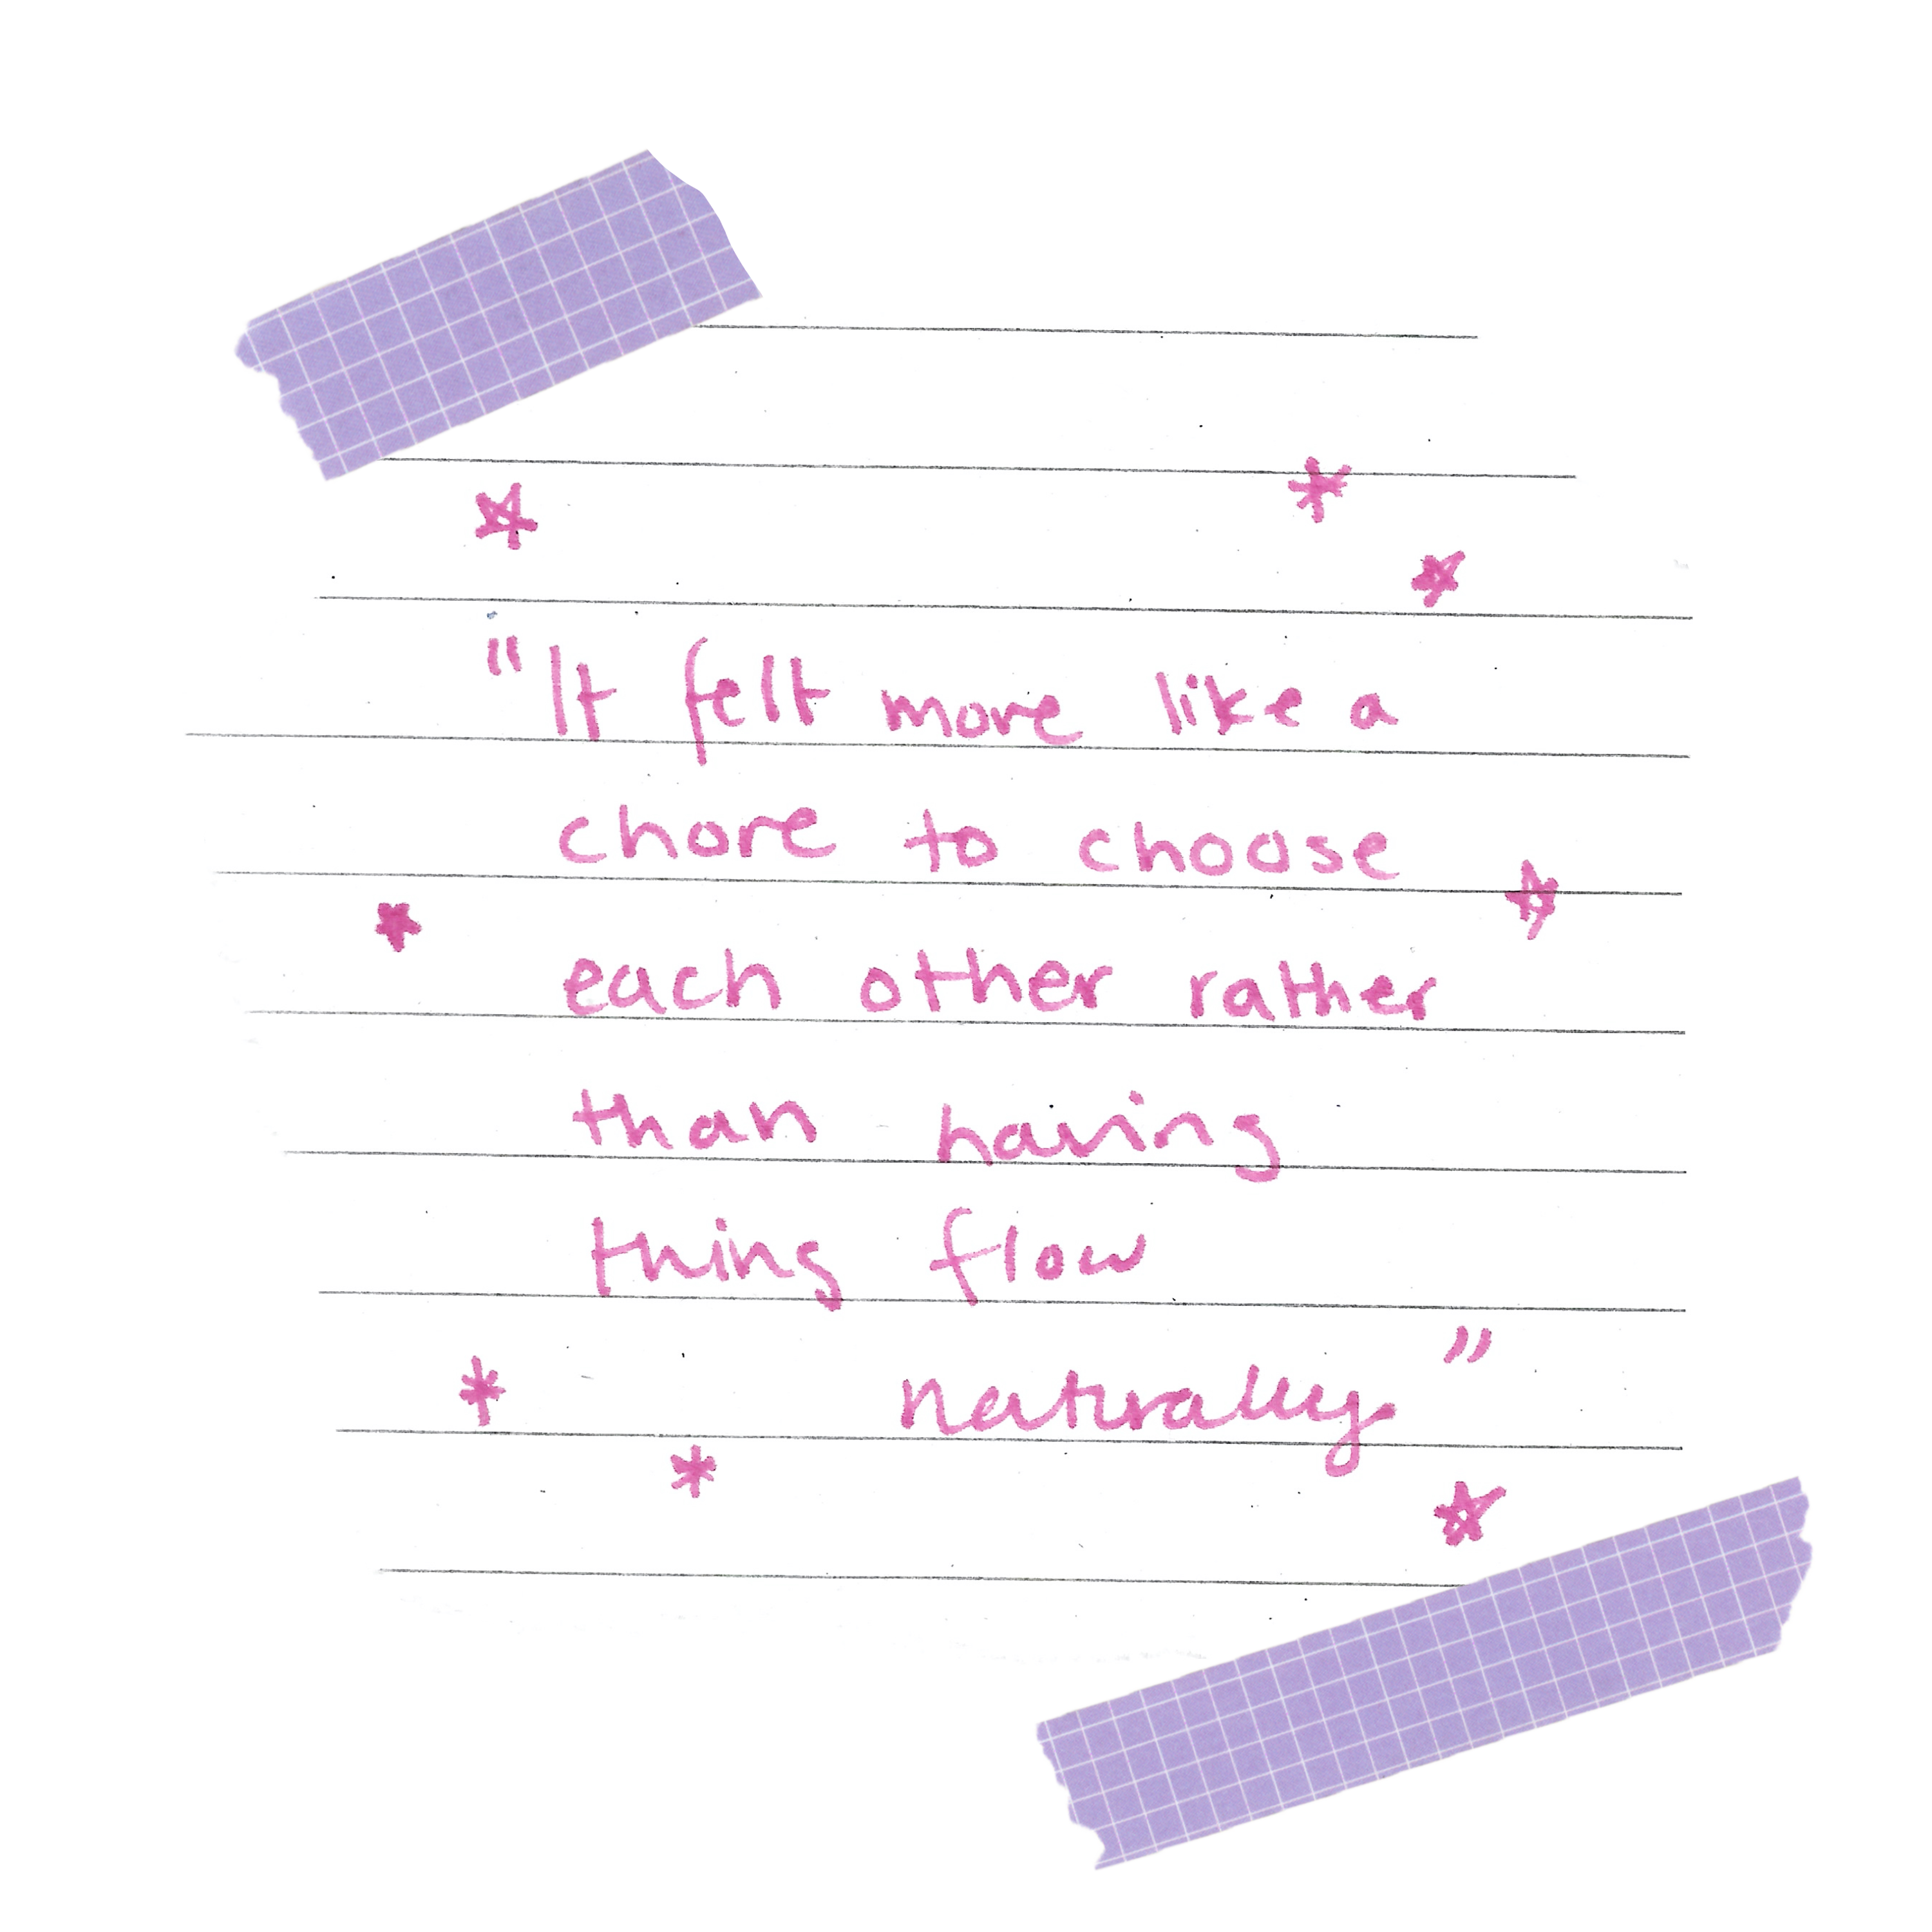 "It felt more like a
chore to choose
each other rather
than having
thing flow
naturally"